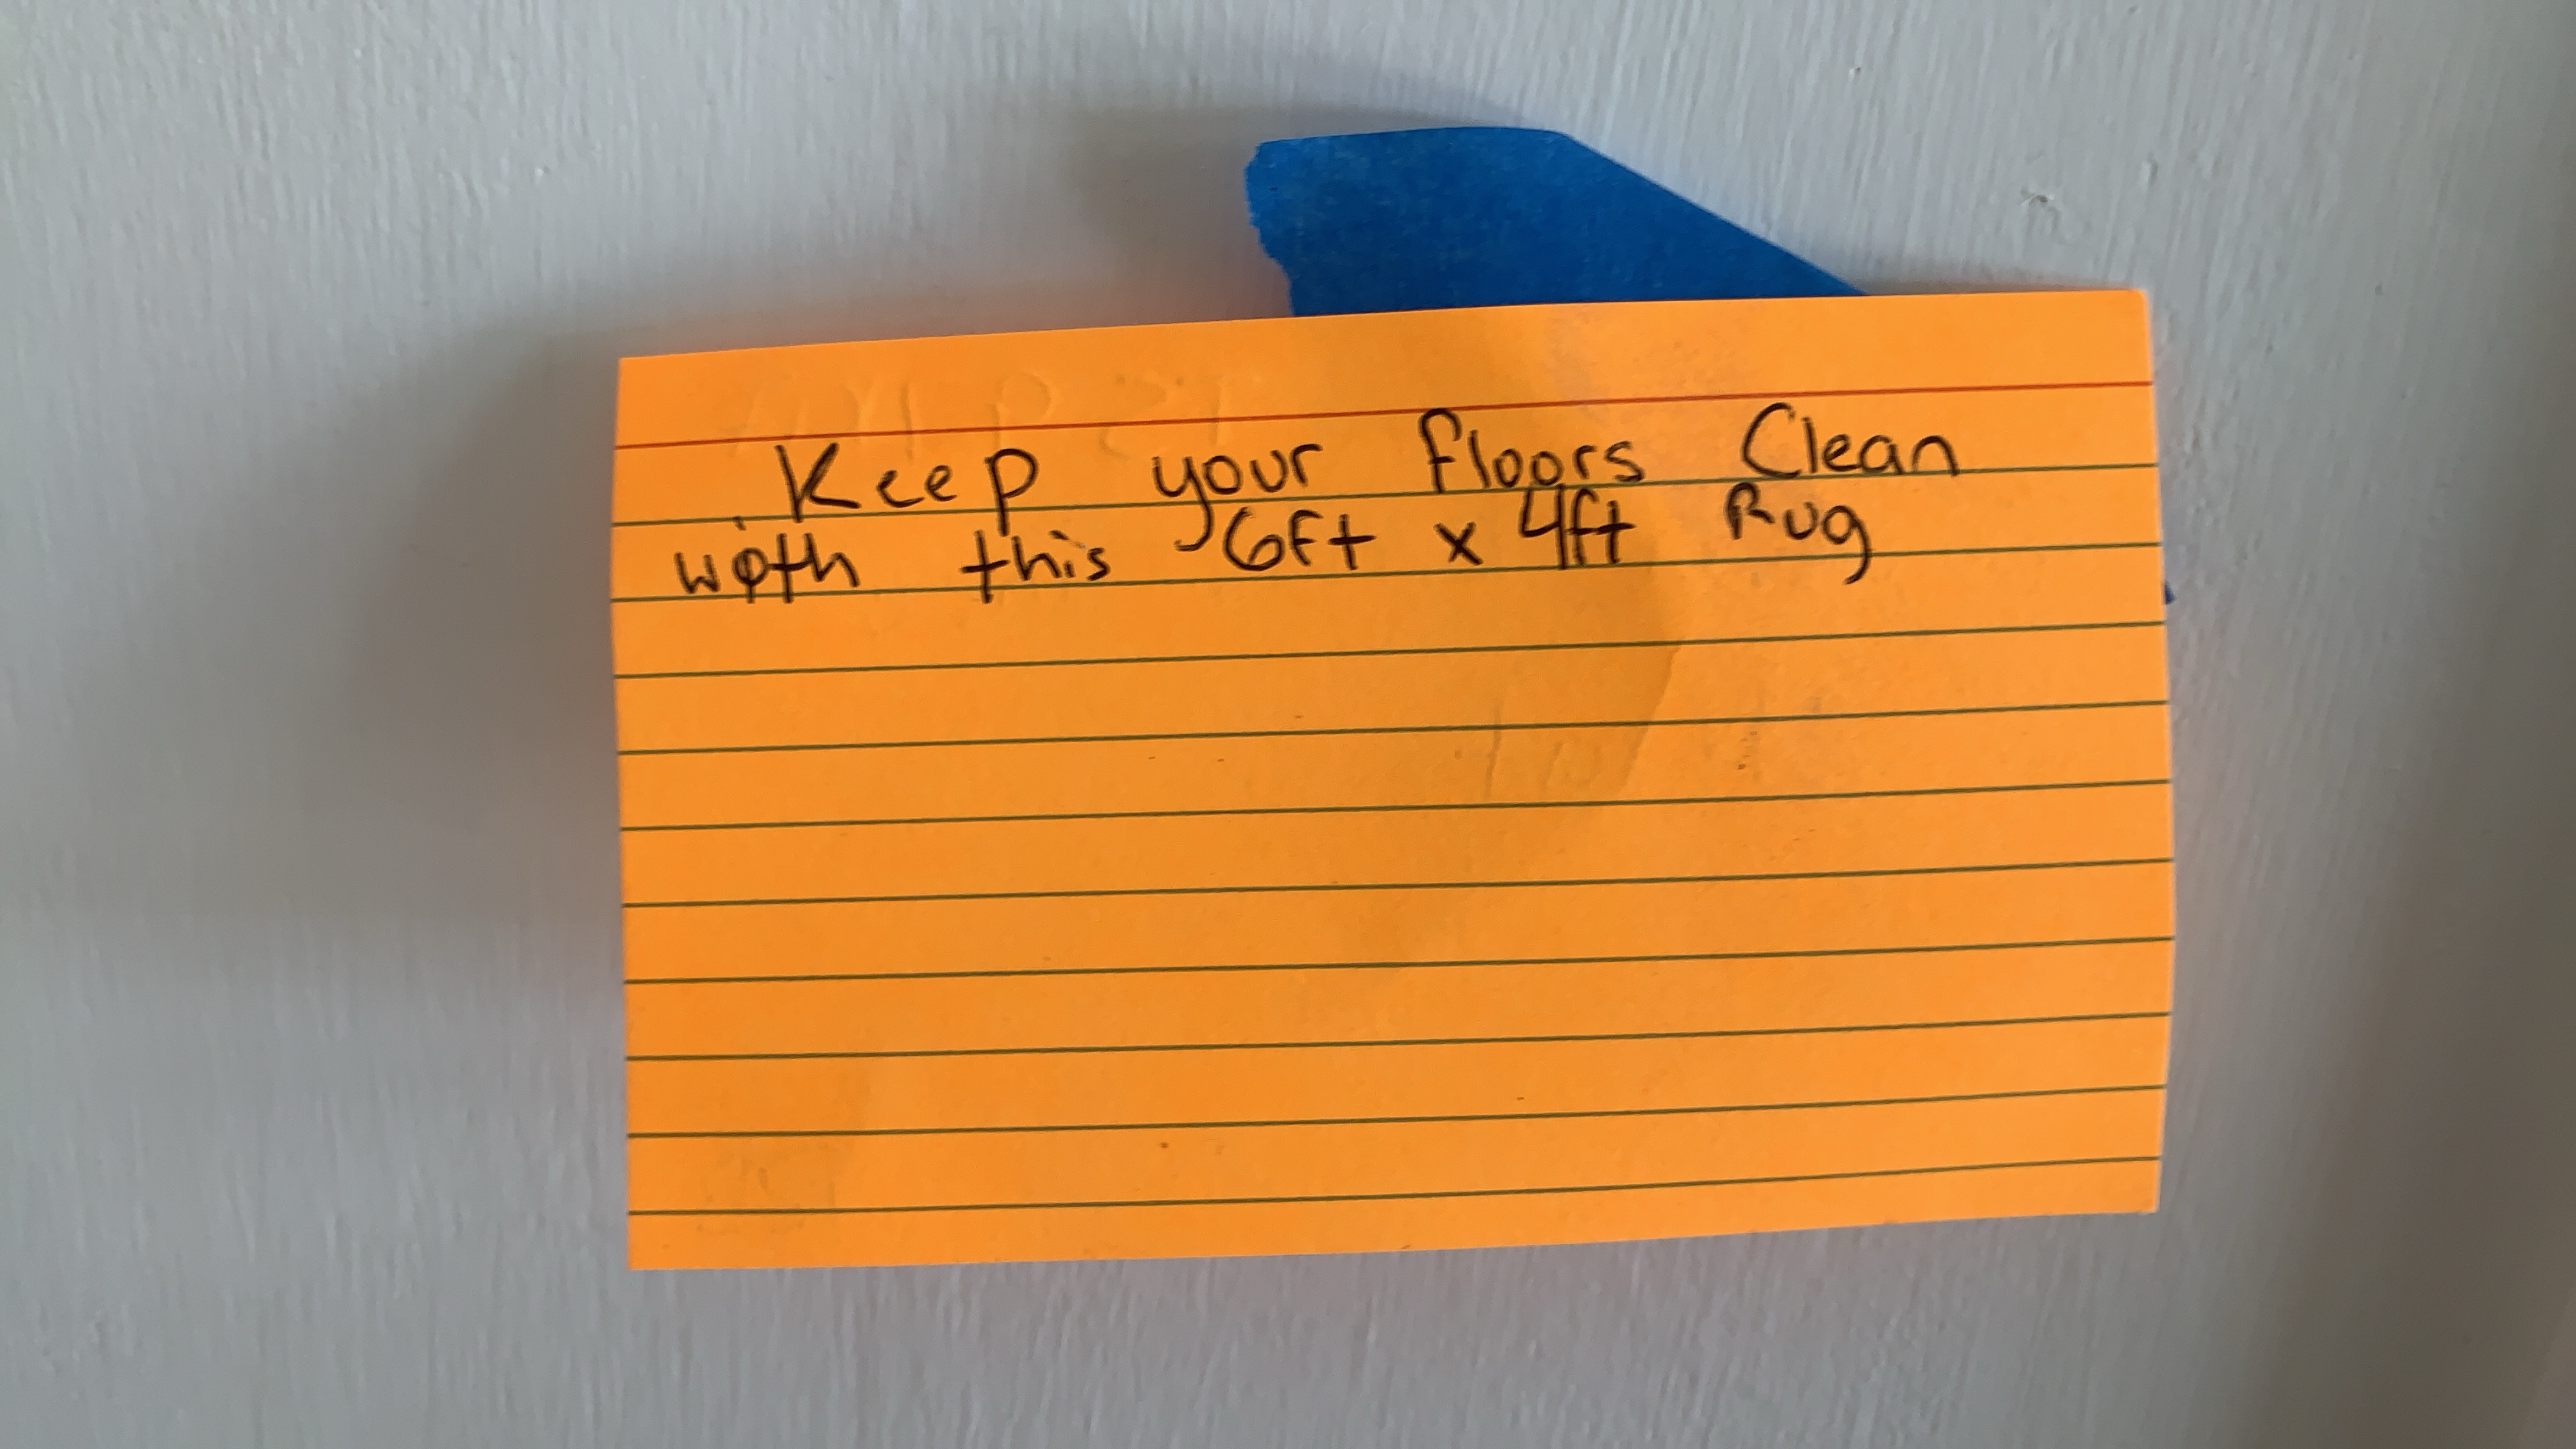 Keep your floors Clean
with this 6ft x 4ft Rug